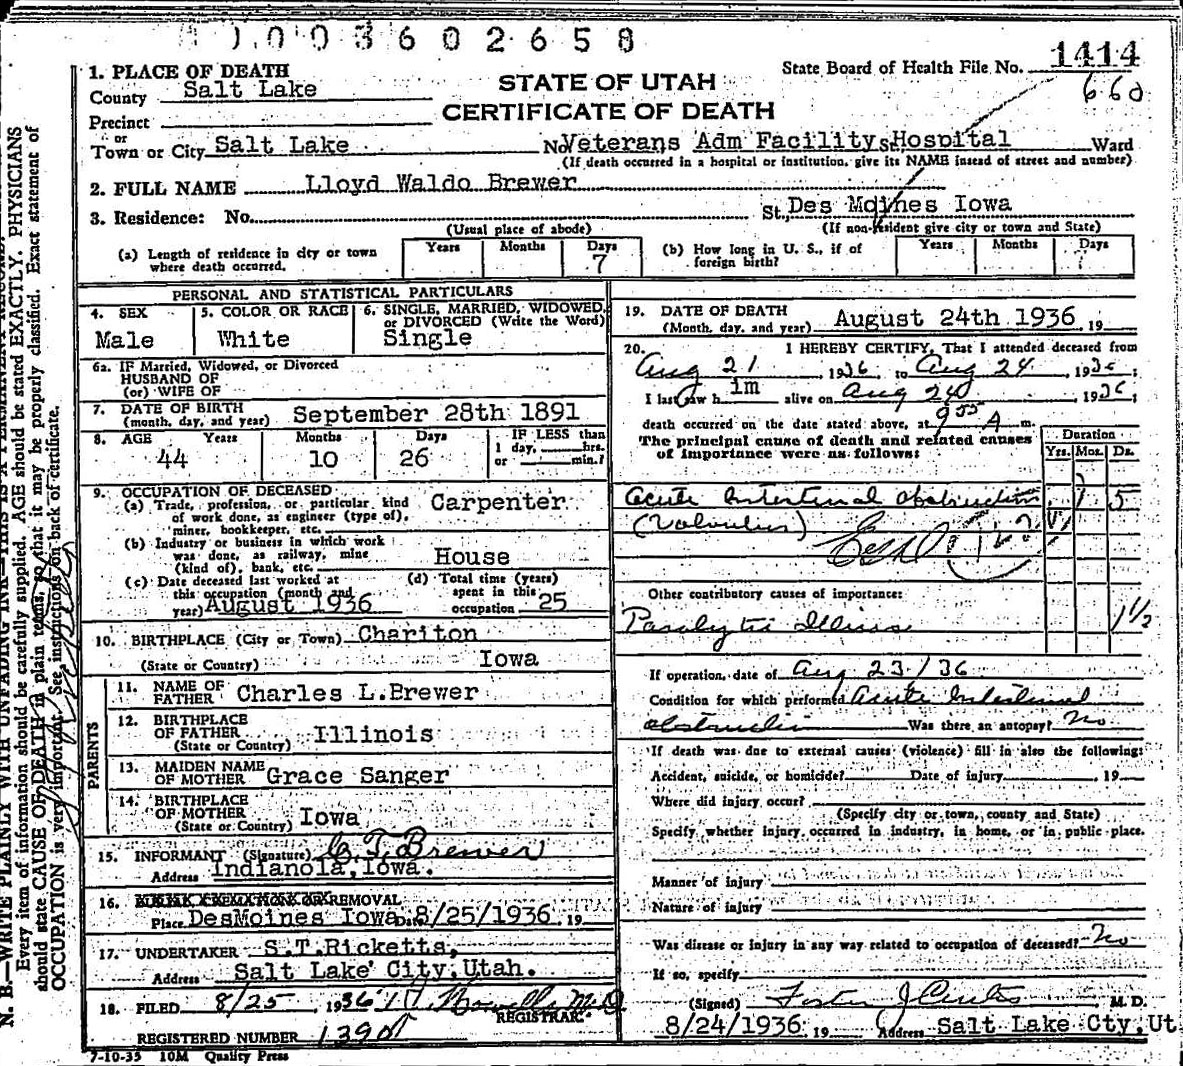 1003602658
1414
State Board of Health File No.
660
STATE OF UTAH
CERTIFICATE OF DEATH
1. PLACE OF DEATH
County Salt Lake
Precinct
or
Town or City Salt Lake No. Veterans Adm Facility St. Hospital Ward
(If death occurred in a hospital or institution, give its NAME instead of street and number)
2. FULL NAME Lloyd Waldo Brewer
3. Residence: No. St. Des Moines Iowa
(Usual place of abode) (If non-resident give city or town and State)
(a) Length of residence in city or town where death occurred. Years Months Days 7
(b) How long in U. S., if of foreign birth? Years Months Days
PERSONAL AND STATISTICAL PARTICULARS
4. SEX Male
5. COLOR OR RACE White
6. SINGLE, MARRIED, WIDOWED, or DIVORCED (Write the Word) Single
6a. IF Married, Widowed, or Divorced
HUSBAND OF
(or) WIFE OF
7. DATE OF BIRTH (month, day, and year) September 28th 1891
8. AGE Years 44 Months 10 Days 26 IF LESS than 1 day, hrs. or min.?
9. OCCUPATION OF DECEASED
(a) Trade, profession, or particular kind of work done, as engineer (type of), miner, bookkeeper, etc. Carpenter
(b) Industry or business in which work was done, as railway, mine (kind of), bank, etc. House
(c) Date deceased last worked at this occupation (month and year) August 1936
(d) Total time (years) spent in this occupation 25
10. BIRTHPLACE (City or Town) Chariton
(State or Country) Iowa
PARENTS
11. NAME OF FATHER Charles L.Brewer
12. BIRTHPLACE OF FATHER (State or Country) Illinois
13. MAIDEN NAME OF MOTHER Grace Sanger
14. BIRTHPLACE OF MOTHER (State or Country) Iowa
15. INFORMANT (Signature) C. T. Brewer
Address Indianola, Iowa.
16. BURIAL CREMATION OR REMOVAL
Place DesMoines Iowa Date 8/25/1936 19
17. UNDERTAKER S.T.Ricketts,
Address Salt Lake City, Utah.
18. FILED 8/25 1936 M. D.
REGISTRAR.
REGISTERED NUMBER 1390
7-10-35 10M Quality Press
19. DATE OF DEATH (Month, day, and year) August 24th 1936 19
20. I HEREBY CERTIFY, That I attended deceased from
Aug 21, 1936 to Aug 24, 1936;
I last saw him alive on Aug 24 1936;
death occurred on the date stated above, at 9 55 A m.
The principal cause of death and related causes of importance were as follows:
Duration
Yrs. Mos. Ds.
Acute Intestinal obstruction 5
(Volvulus)
Other contributory causes of importance:
Paralytic Illius 1½
If operation, date of Aug 23/36
Condition for which performed Acute Intestinal
obstruction Was there an autopsy? No
If death was due to external causes (violence) fill in also the following:
Accident, suicide, or homicide? Date of injury 19
Where did injury occur?
(Specify city or town, county and State)
Specify whether injury occurred in industry, in home, or in public place.
Manner of injury
Nature of injury
Was disease or injury in any way related to occupation of deceased? No
If so, specify
(Signed) Foster J Curtis M. D.
8/24/1936 19 Address Salt Lake Cty, Ut
N. B.—WRITE PLAINLY WITH UNFADING INK—THIS IS A PERMANENT RECORD.
Every item of information should be carefully supplied. AGE should be stated EXACTLY. PHYSICIANS
should state CAUSE OF DEATH in plain terms, so that it may be properly classified. Exact statement of
OCCUPATION is very important. See instructions on back of certificate.